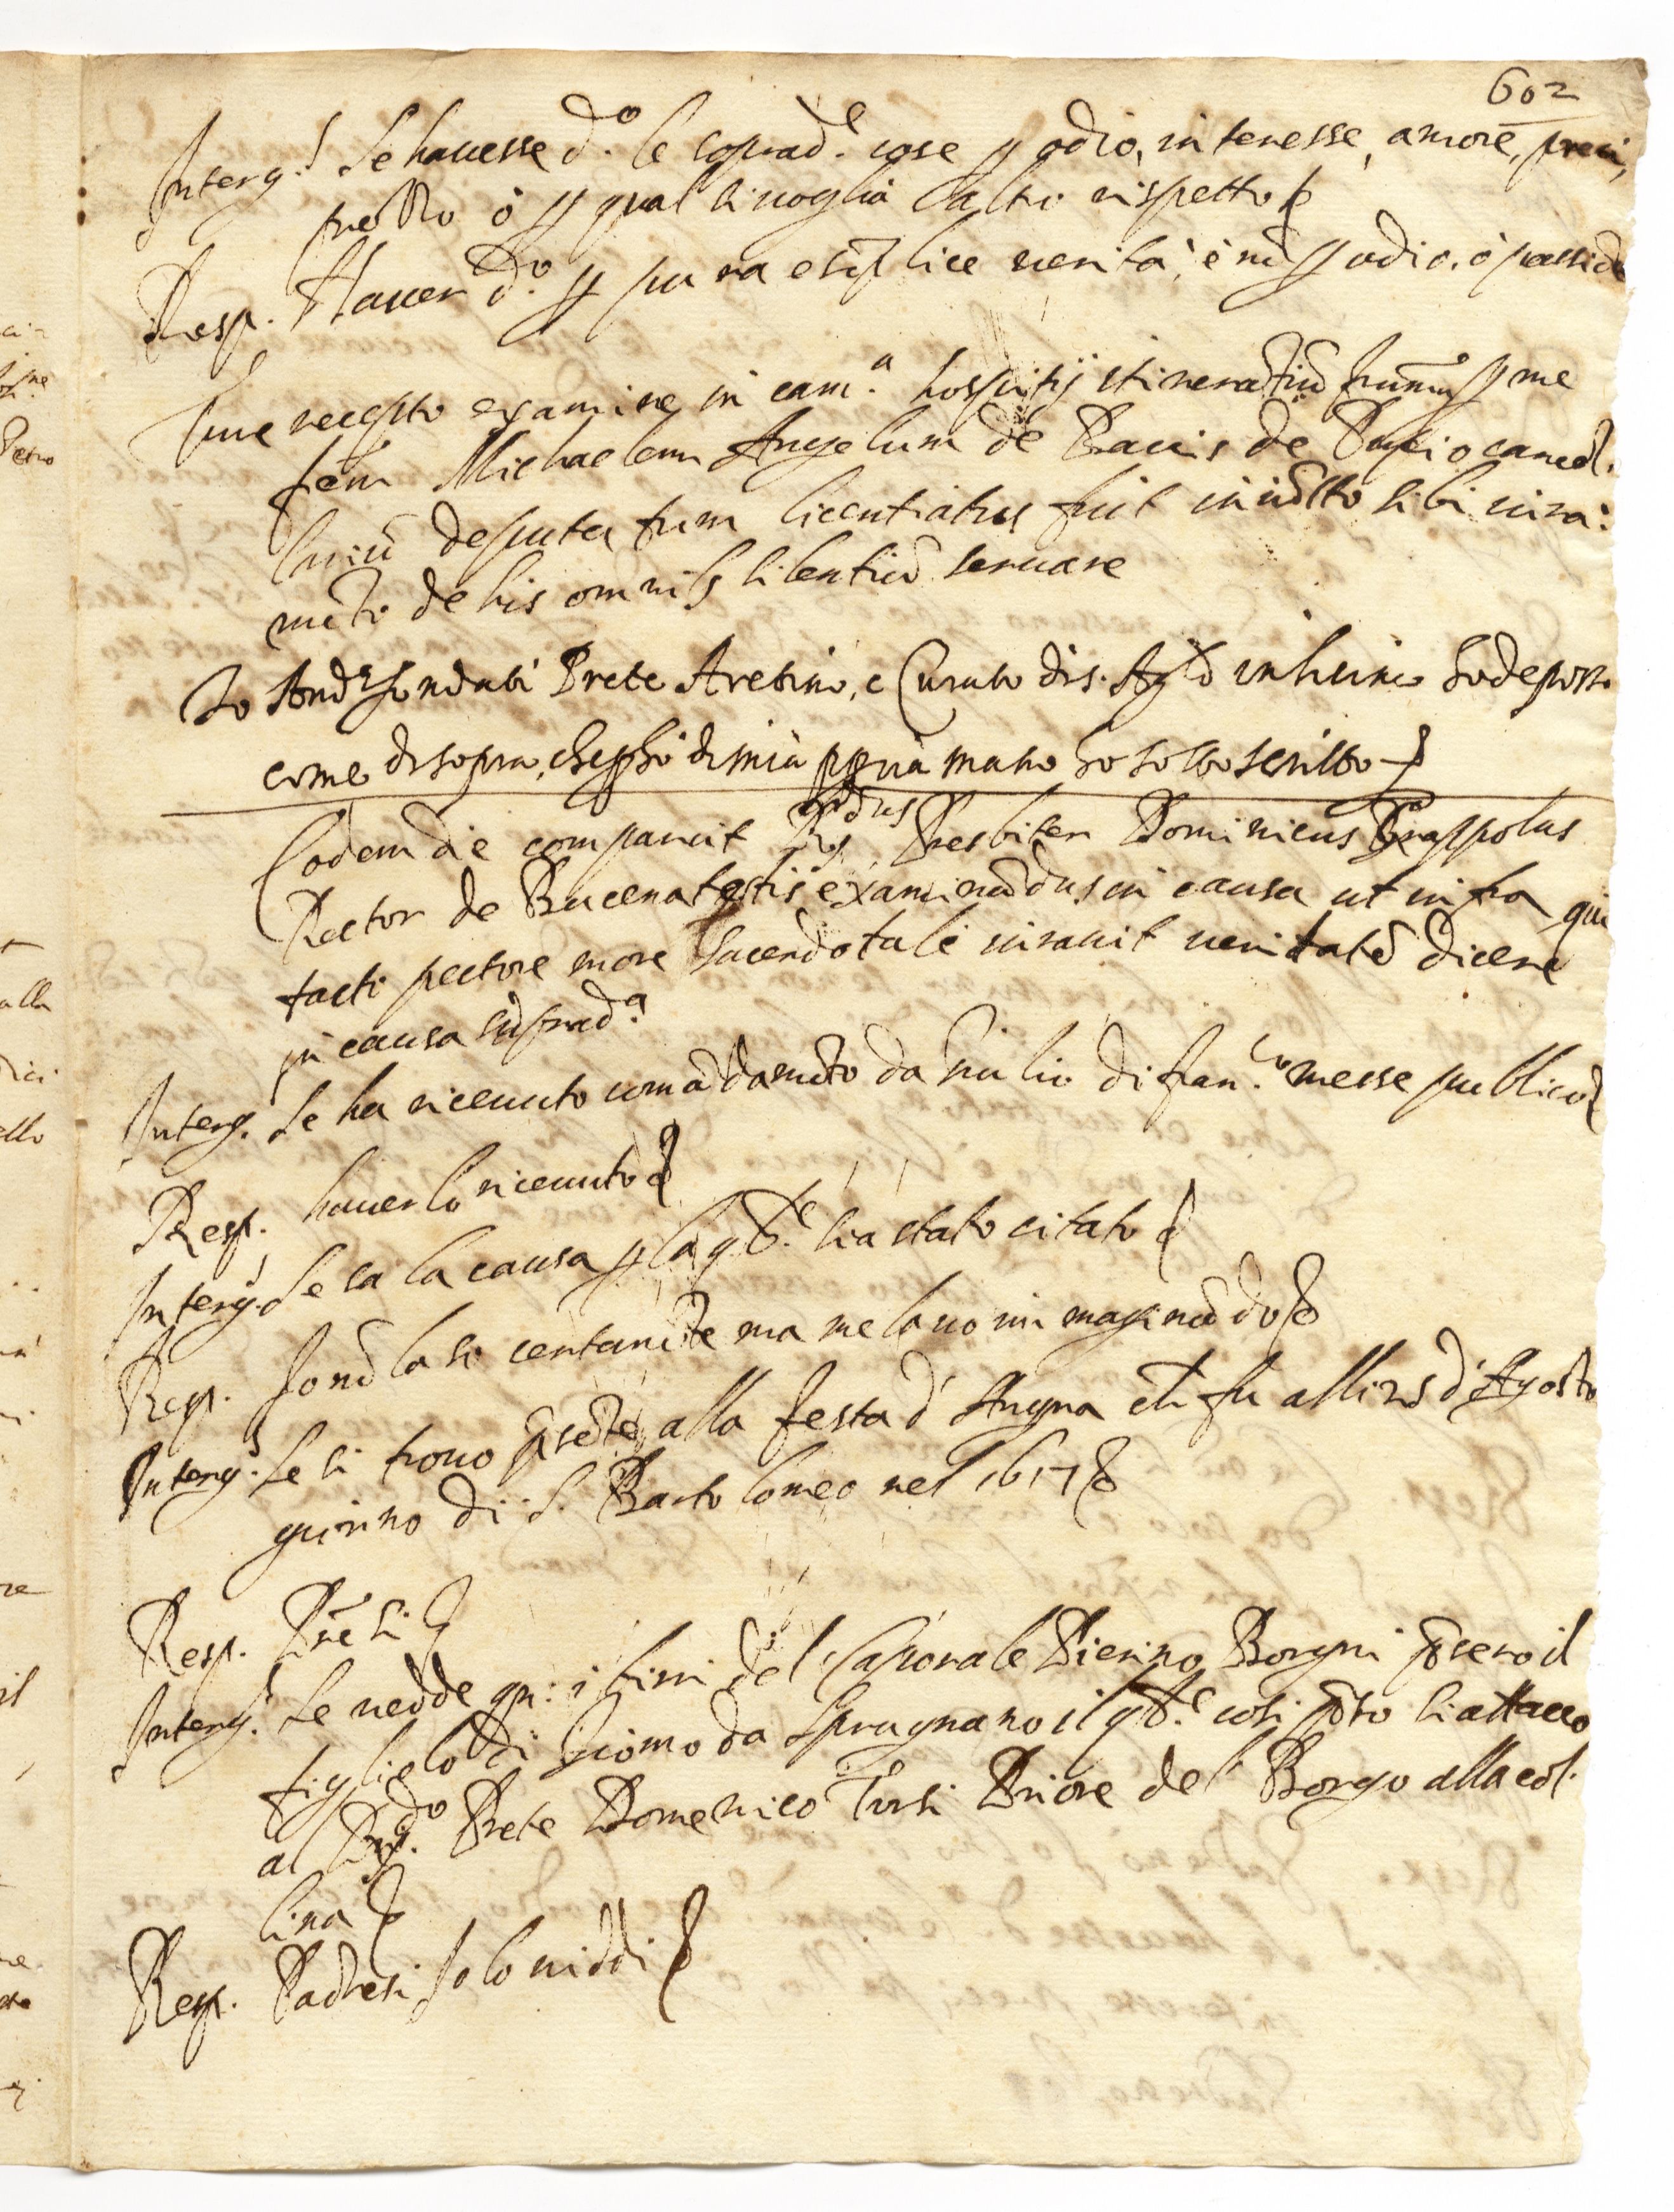 602
Interg.s Se hauesse d.o le soprad.e cose p odio, interesse, amore, preci,
prezzo ò p qual si uoglia altro rispetto
Resp. Hauer d.o p pura e semplice uerità, è nõ p odio, ò passiõe
Tunc recepto examine in cam.a hospitij itinerantiũ p me
Michaelem Angelum de Paciis de cancel.
deputatum licentiatus fuit iniũcto sibi iura:
mẽto de his omnibs silentiũ seruare
Io And.a fondati Prete Aretino, e Curato di s. Ag.lo ho deposto
come di sopra, e p fè di mia ppria mano ho sottoscritto
Eodem die comparuit R.dus Presbiter Dominicus Grappolus
Rector de Bucena testis examinãdus in causa ut infra qui
tacto pectore more sacerdotali iurauit ueritatẽ dicere
in causa infrad.a
Interg. Se ha riceuuto comãdamẽto da Giulio di fran.co messo publico
Resp. hauerlo riceuuto
Interg.s Se sa la causa p la q.le sia stato citato
Resp. Io nõ la so certamẽte ma me la uo immaginãdo
Interg.s Se si trouo p̃sẽte alla festa d' Angna ch fu alli 25 d'Agosto
giorno di S. Bartolomeo nel 1617
Resp. P.re si
Interg.s Se uedde qñ i birri del Caporale Pierino Borgni p̃sero il
figliolo di Giomo da Spragnano il q.le cosi p̃so si attacco
al R.do Prete Domenico Tursi Priore del Borgo alla cot
lina
Resp. Padre si Io lo uiddi